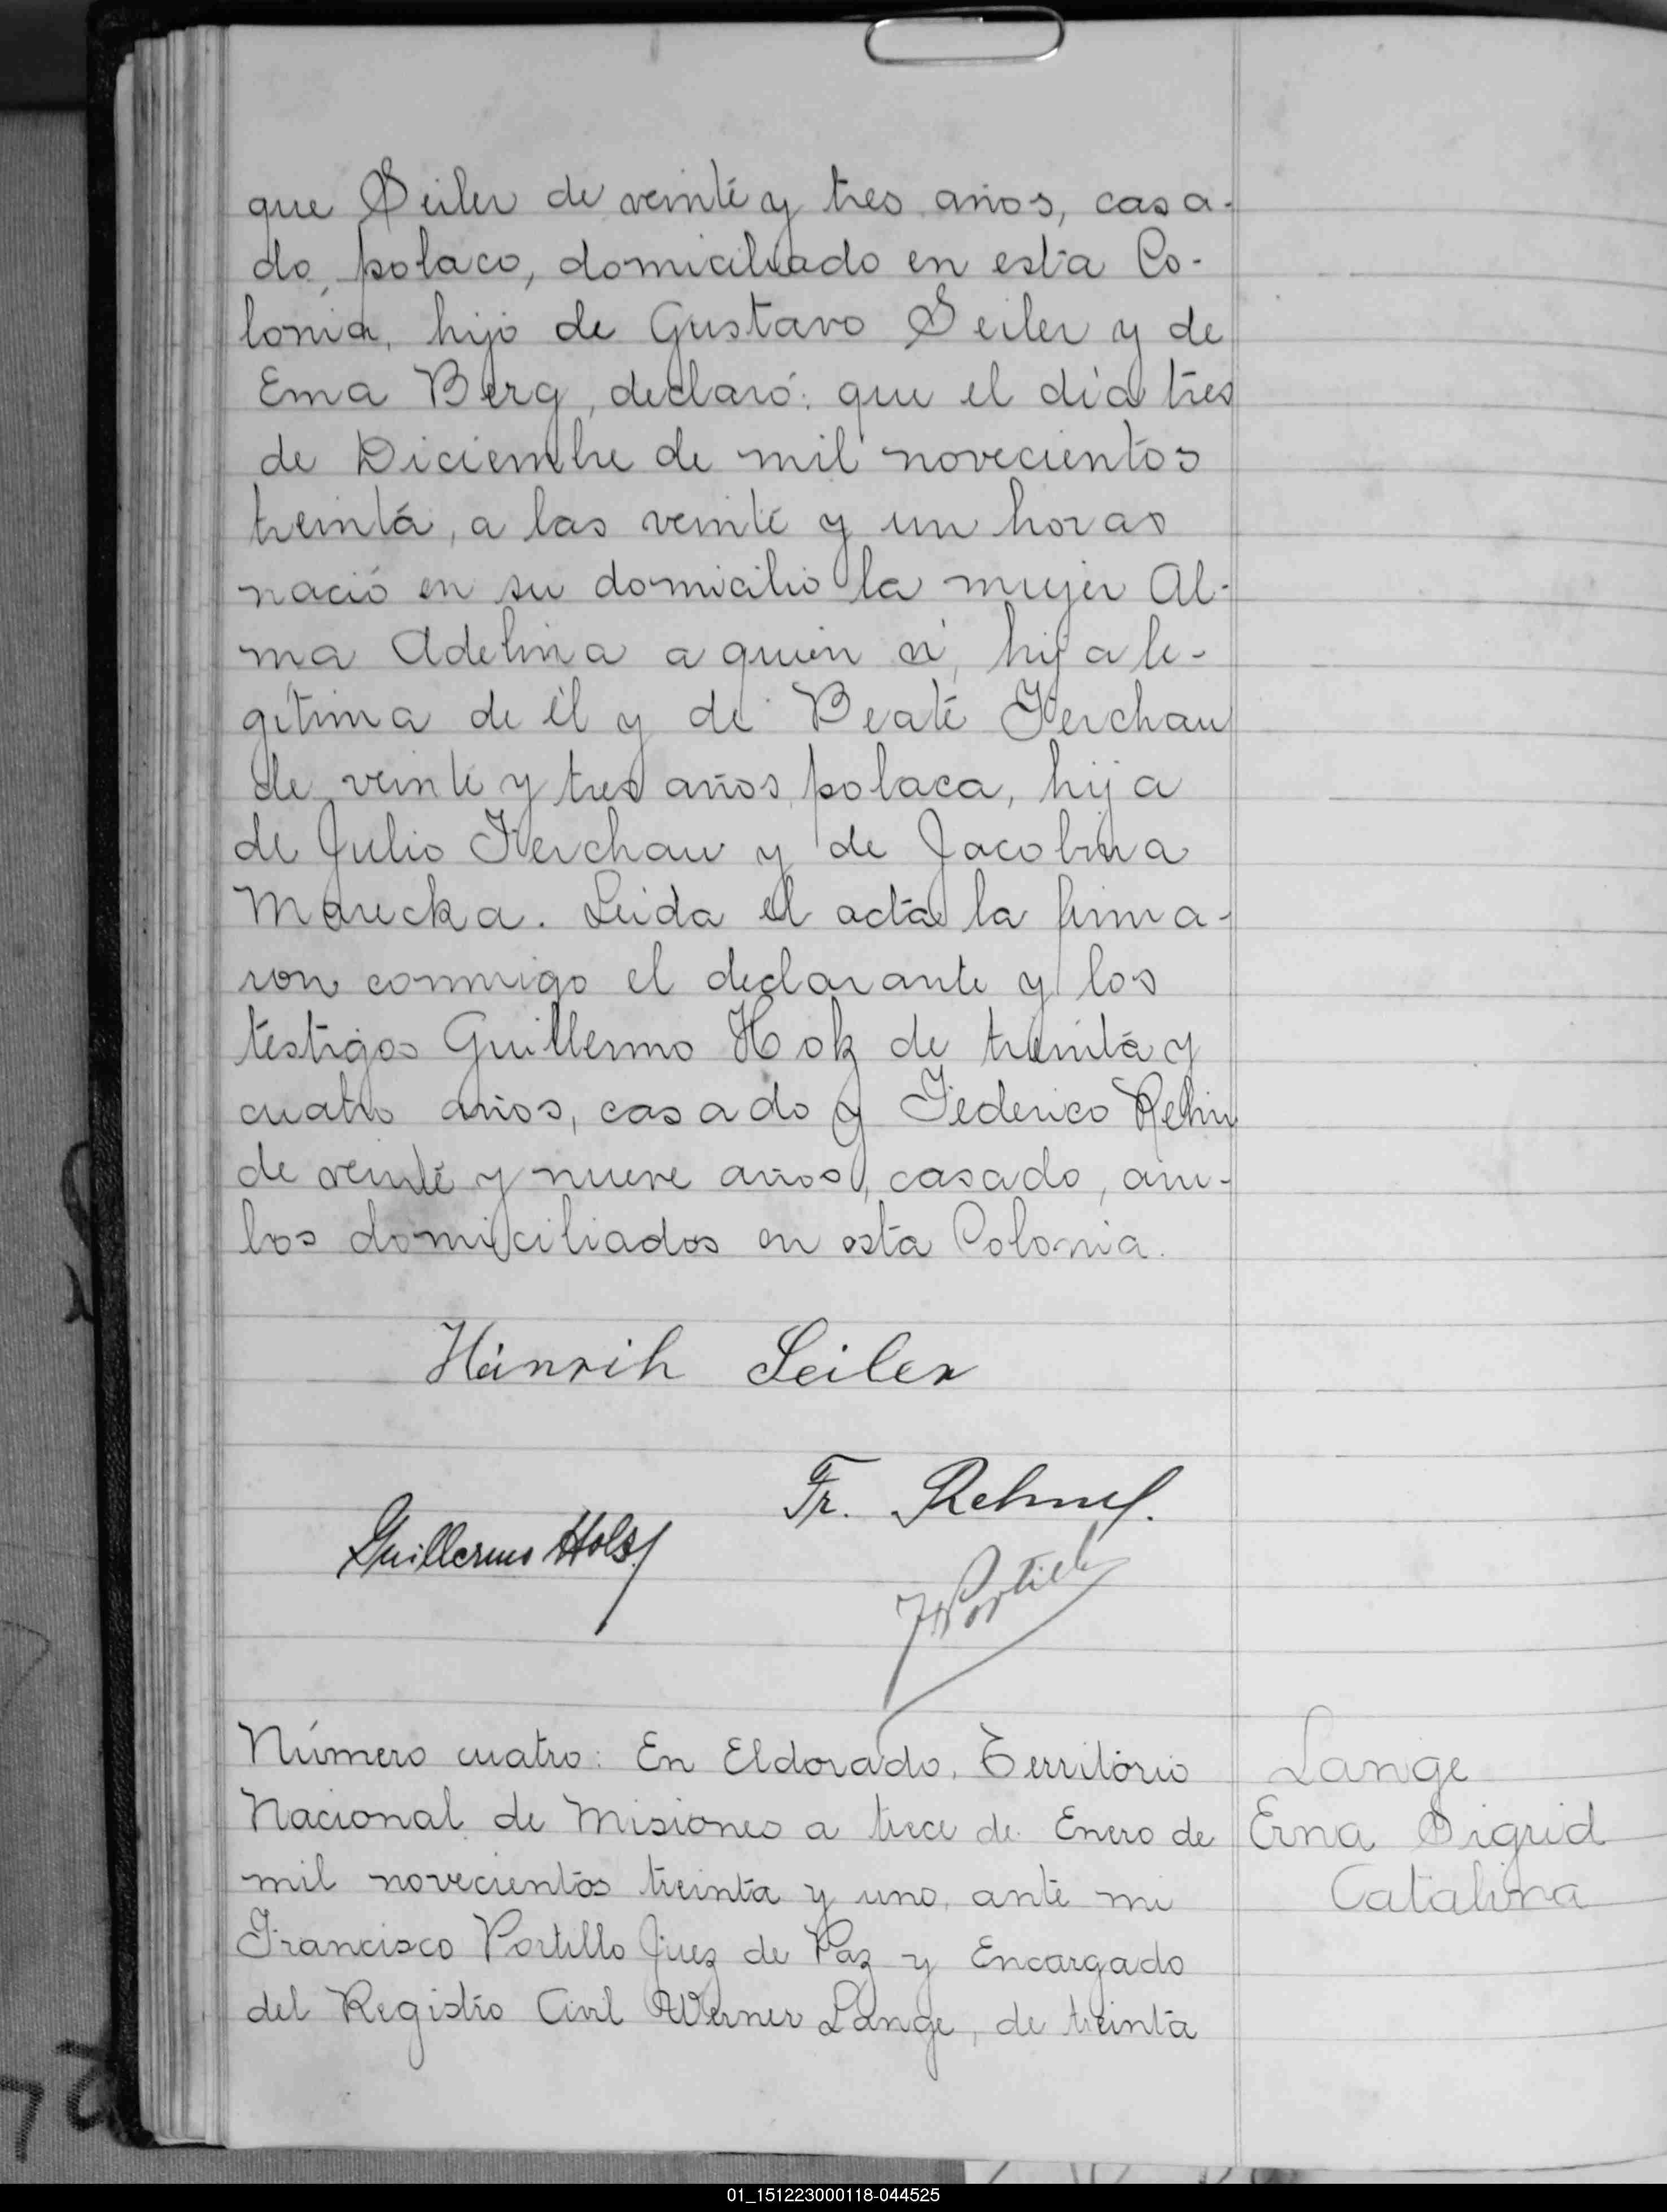 que Seiler de veinte y tres años, casa-
do, polaco, domiciliado en esta Co-
lonia, hijo de Gustavo Seiler y de
Ema Berg, declaró: que el día tres
de Diciembre de mil novecientos
treinta, a las veinte y un horas
nació en su domicilio la mujer Al-
ma Adelina a quien vi, hija le-
gítima de él y de Beate Ferchau
de veinte y tres años, polaca, hija
de Julio Ferchau y de Jacobina
Marecka. Leida el acta la firma-
ron conmigo el declarante y los
testigos Guillermo Hok de treinta y
cuatro años, casado y Federico
de veinte y nueve años, casado, am-
bos domiciliados en esta Colonia.
Hainrih Seiler
Fr.
Guillermo
Número cuatro: En Eldorado, Territorio
Lange
Nacional de Misiones a trece de Enero de
Erna Sigrid
mil novecientos treinta y uno, ante mi
Catalina
Francisco Portillo Juez de Paz y Encargado
del Registro Civil Werner Lange, de treinta
01_151223000118-044525